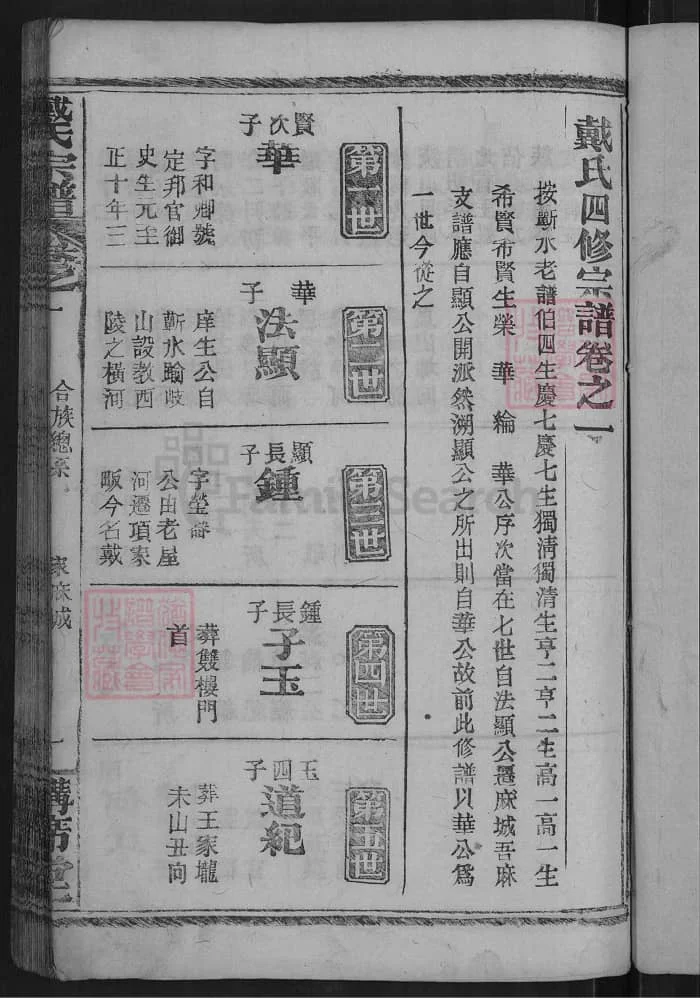 戴氏四修宗譜卷之一
按蘄水老譜伯四生慶七慶七生獨淸獨清生亨二亨二生高一高一生
希賢布賢生榮 華 綸 華公序次當在七世自法顯公遷麻城吾麻
支譜應自顯公開派然溯顯公之所出則自華公故前此修譜以華公爲
一世今從之
第一世
賢次子
華
字和卿號
定邦官御
史生元至
正十年三
第二世
華子
法顯
庠生公自
蘄水踰歧
山設教西
陵之橫河
第三世
顯長子
鍾
字瑩
公由老屋
河遷項家
畈今名戴
第四世
鍾長子
子玉
葬雙樓門
首
第五世
玉四子
道紀
葬王家壠
未山丑向
戴氏宗譜
卷之一
合族總系
麻城
一
FamilySearch